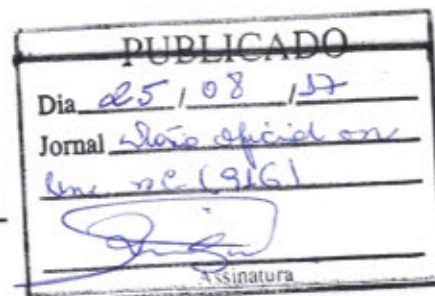 PUBLICADO
Dia 25 / 08 / 17
Jornal Diário oficial on
line nº (916)
Assinatura